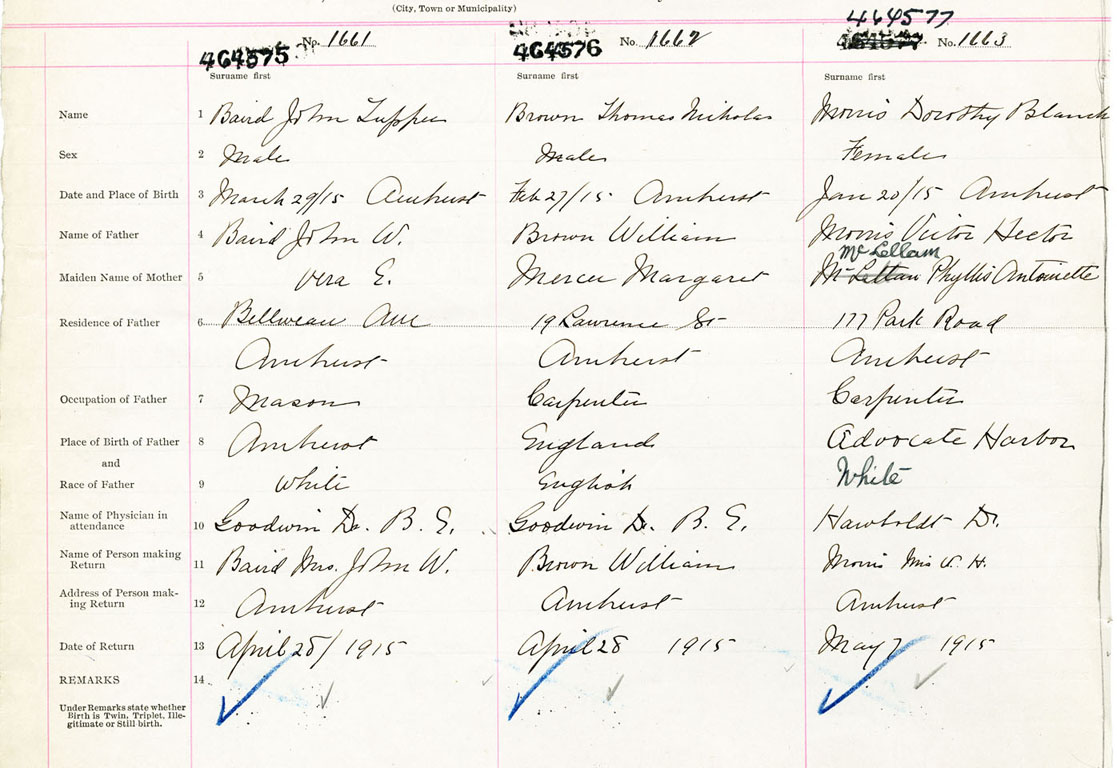 (City, Town or Municipality)
464575 No. 1661 464576 No. 1662 464577 No. 1663
Surname first Surname first Surname first
Name 1 Baird John Tupper Brown Thomas Nicholas Morris Dorothy Blanch
Sex 2 Male Male Female
Date and Place of Birth 3 March 29/15 Amherst Feb 27/15 Amherst Jan 20/15 Amherst
Name of Father 4 Baird John W. Brown William Morris Victor Hector
McLellam
Maiden Name of Mother 5 Vera E. Mercer Margaret Phyllis Antoinette
Residence of Father 6 Ave 19 Lawrence St 177 Park Road
Amherst Amherst Amherst
Occupation of Father 7 Mason Carpenter Carpenter
Place of Birth of Father 8 Amherst England Advocate Harbor
and
Race of Father 9 White English White
Name of Physician in
attendance 10 Goodwin Dr. B. E. Goodwin Dr. B. E. Hawboldt Dr.
Name of Person making
Return 11 Baird Mrs. John W. Brown William Morris Mrs V. H.
Address of Person mak-
ing Return 12 Amherst Amherst Amherst
Date of Return 13 April 28/ 1915 April 28 1915 May 7 1915
REMARKS 14
Under Remarks state whether
Birth is Twin, Triplet, Ille-
gitimate or Still-birth.